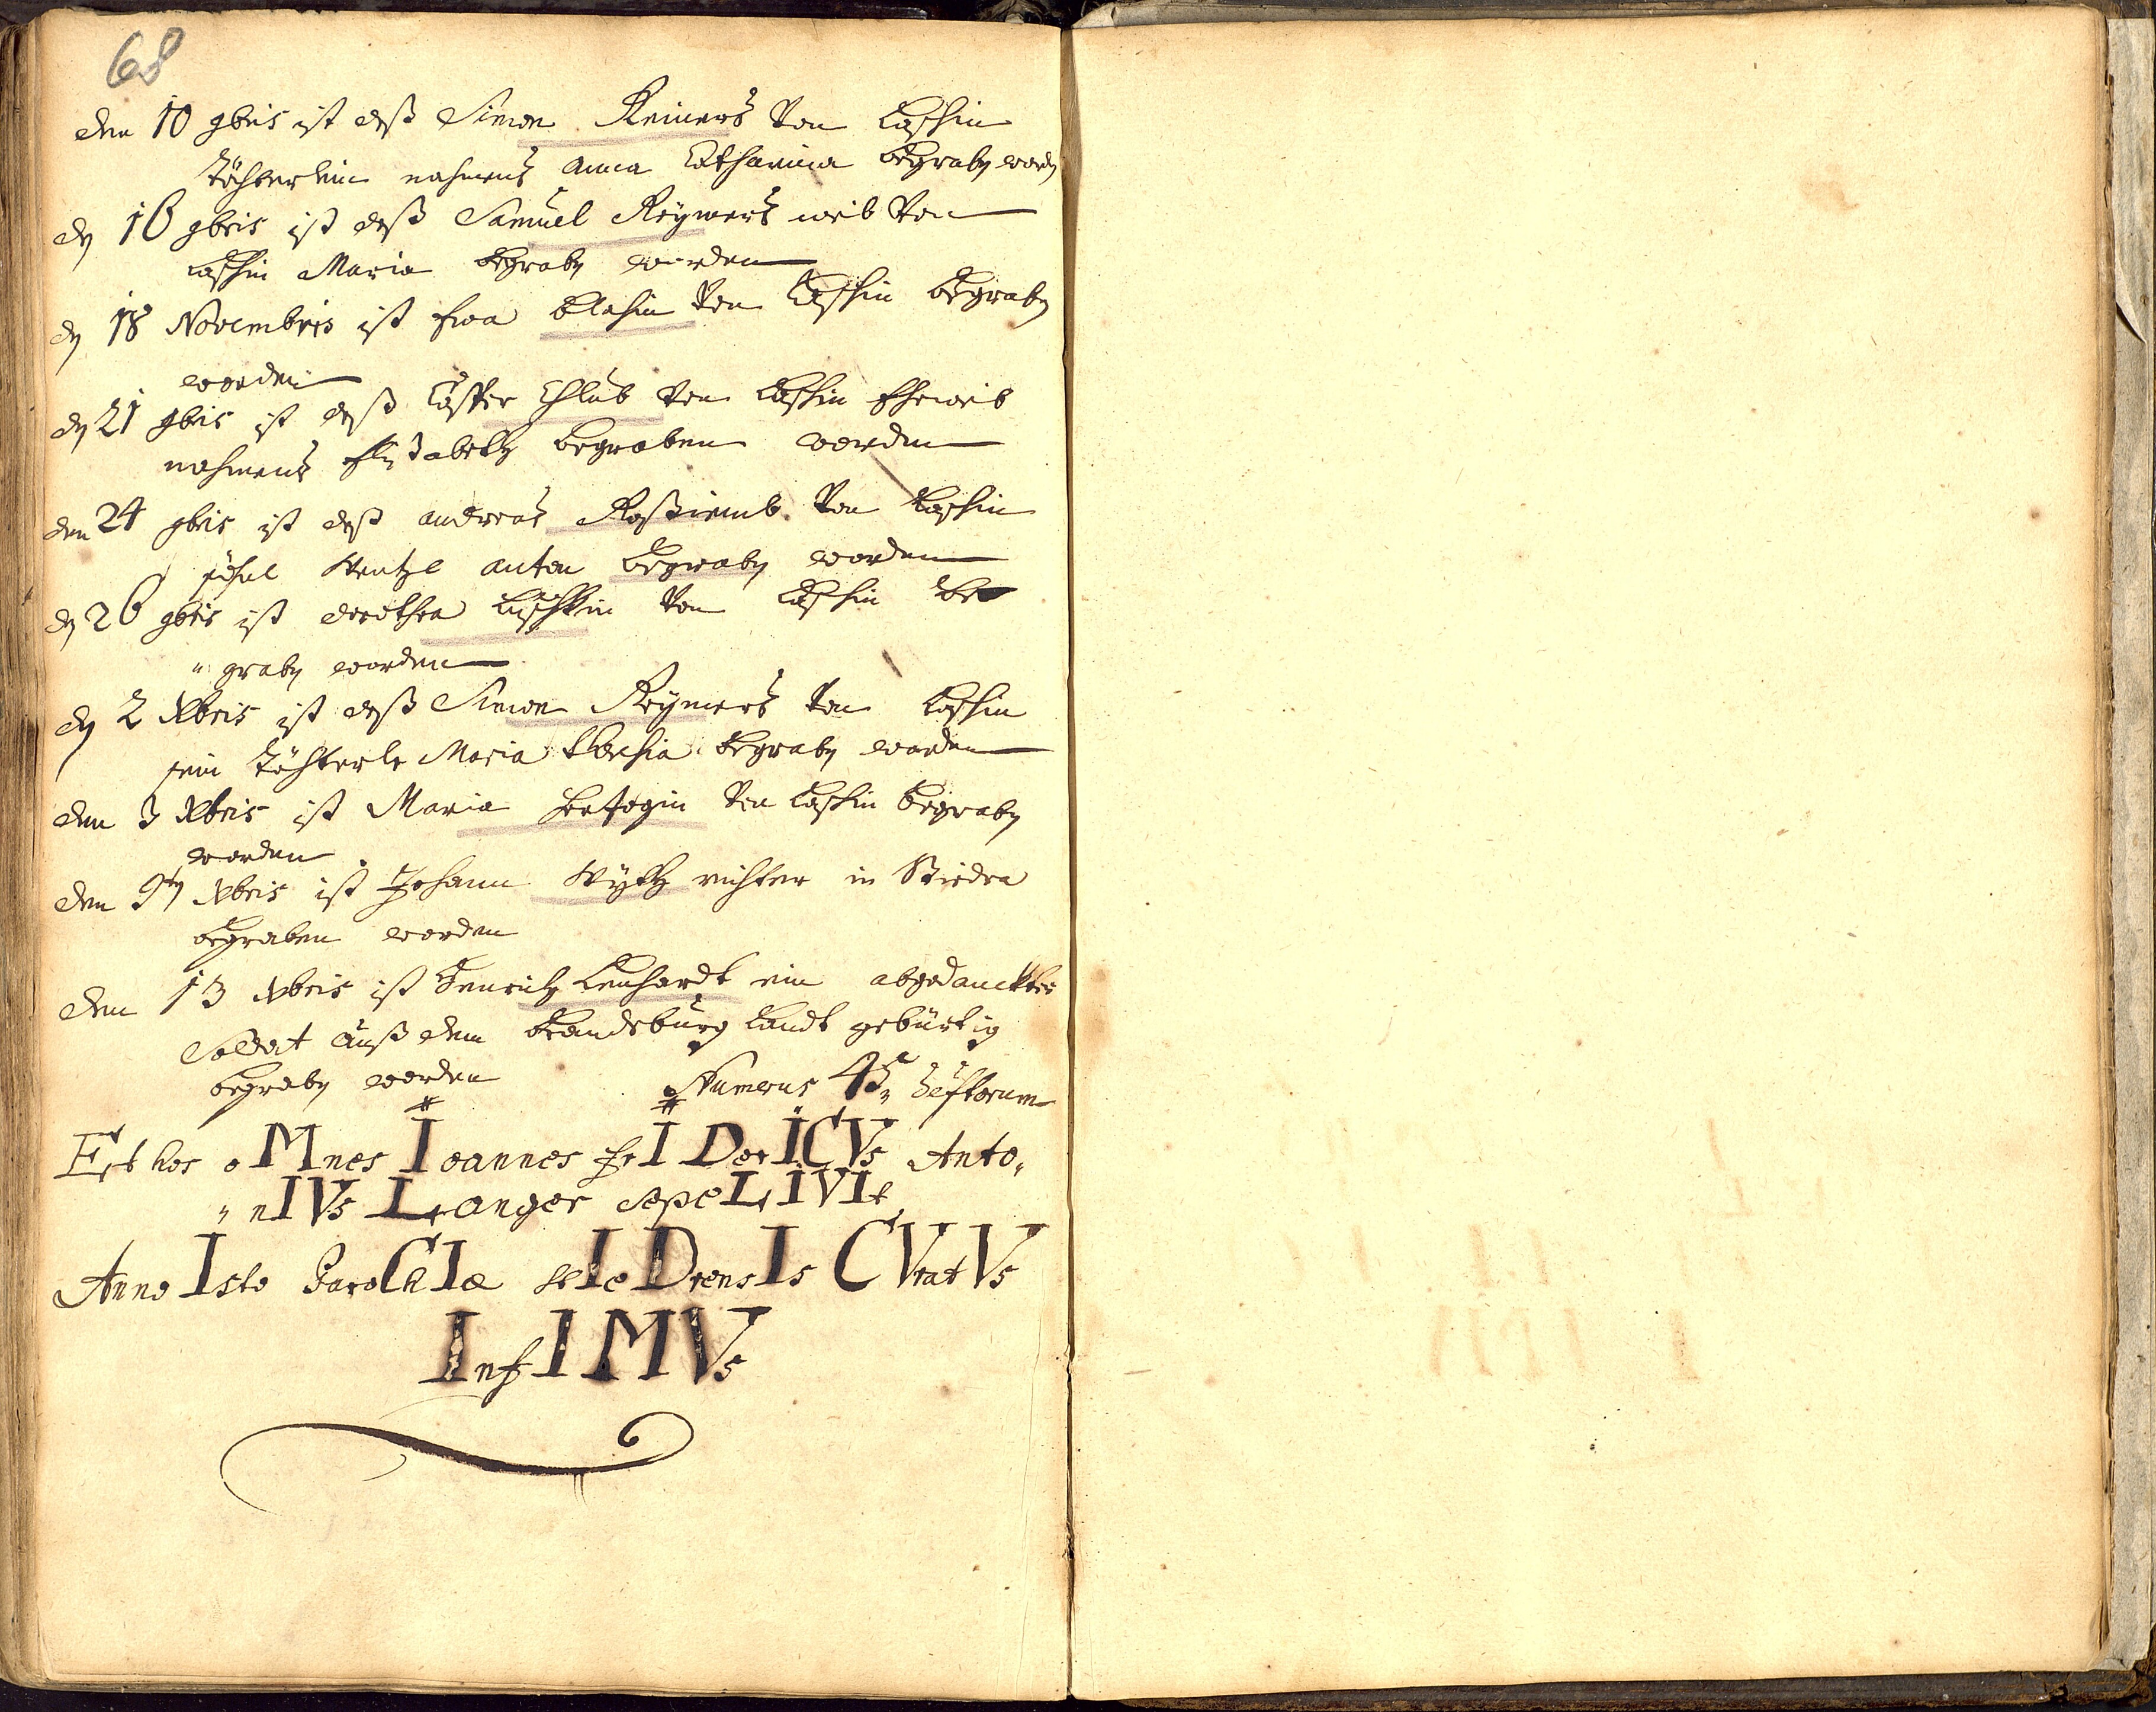 68
den 10 9bris ist deß Simon Reiners von Luschin
Töchterlein nahmens Anna Catharina begrabn wordn
dn 16 9bris ist deß Samuel Reymers weib von
Luschin Maria begrabn worden
dn 18 Novembris ist Eva Blasin von Luschin begrabn
worden
dn 21 9bris ist deß Casper von Luschin Eheweib
nahmens Elisabeth begraben worden
den 24 9bris ist deß Andreas von Luschin
söhnl Wentzl Anton begrabn worden
dn 26 9bris ist Dorothea von Luschin be
„ grabn worden
dn 2 Xbris ist deß Simon Reymers von Luschin
sein Töchterle Maria begrabn worden
den 3 Xbris ist Maria Hertzogin von Luschin begrabn
worden
den 9tn Xbris ist Johann richter in Stiedra
begraben worden
den 13 Xbris ist Henrich Lenhardt ein abgedanckter
Soldat auß dem Brandeburg Landt gebürtig
begrabn worden Numerus 45
Et hos oMnes Ioannes frIDerICVs Anto„
„ nIVs Langer sepeLIVIt
Anno Isto ParoChIæ stIeDrensIs CVratVs
InfIMVs